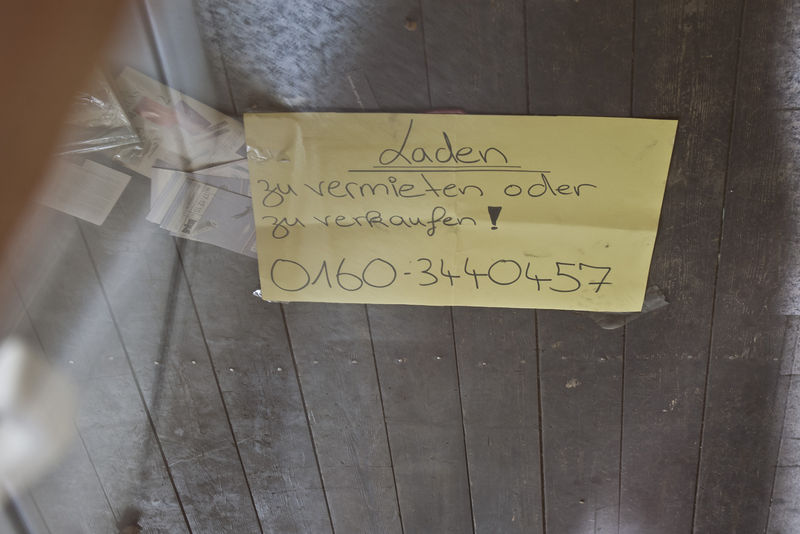 Laden
zu vermieten oder
zu verkaufen!
0160-3440457